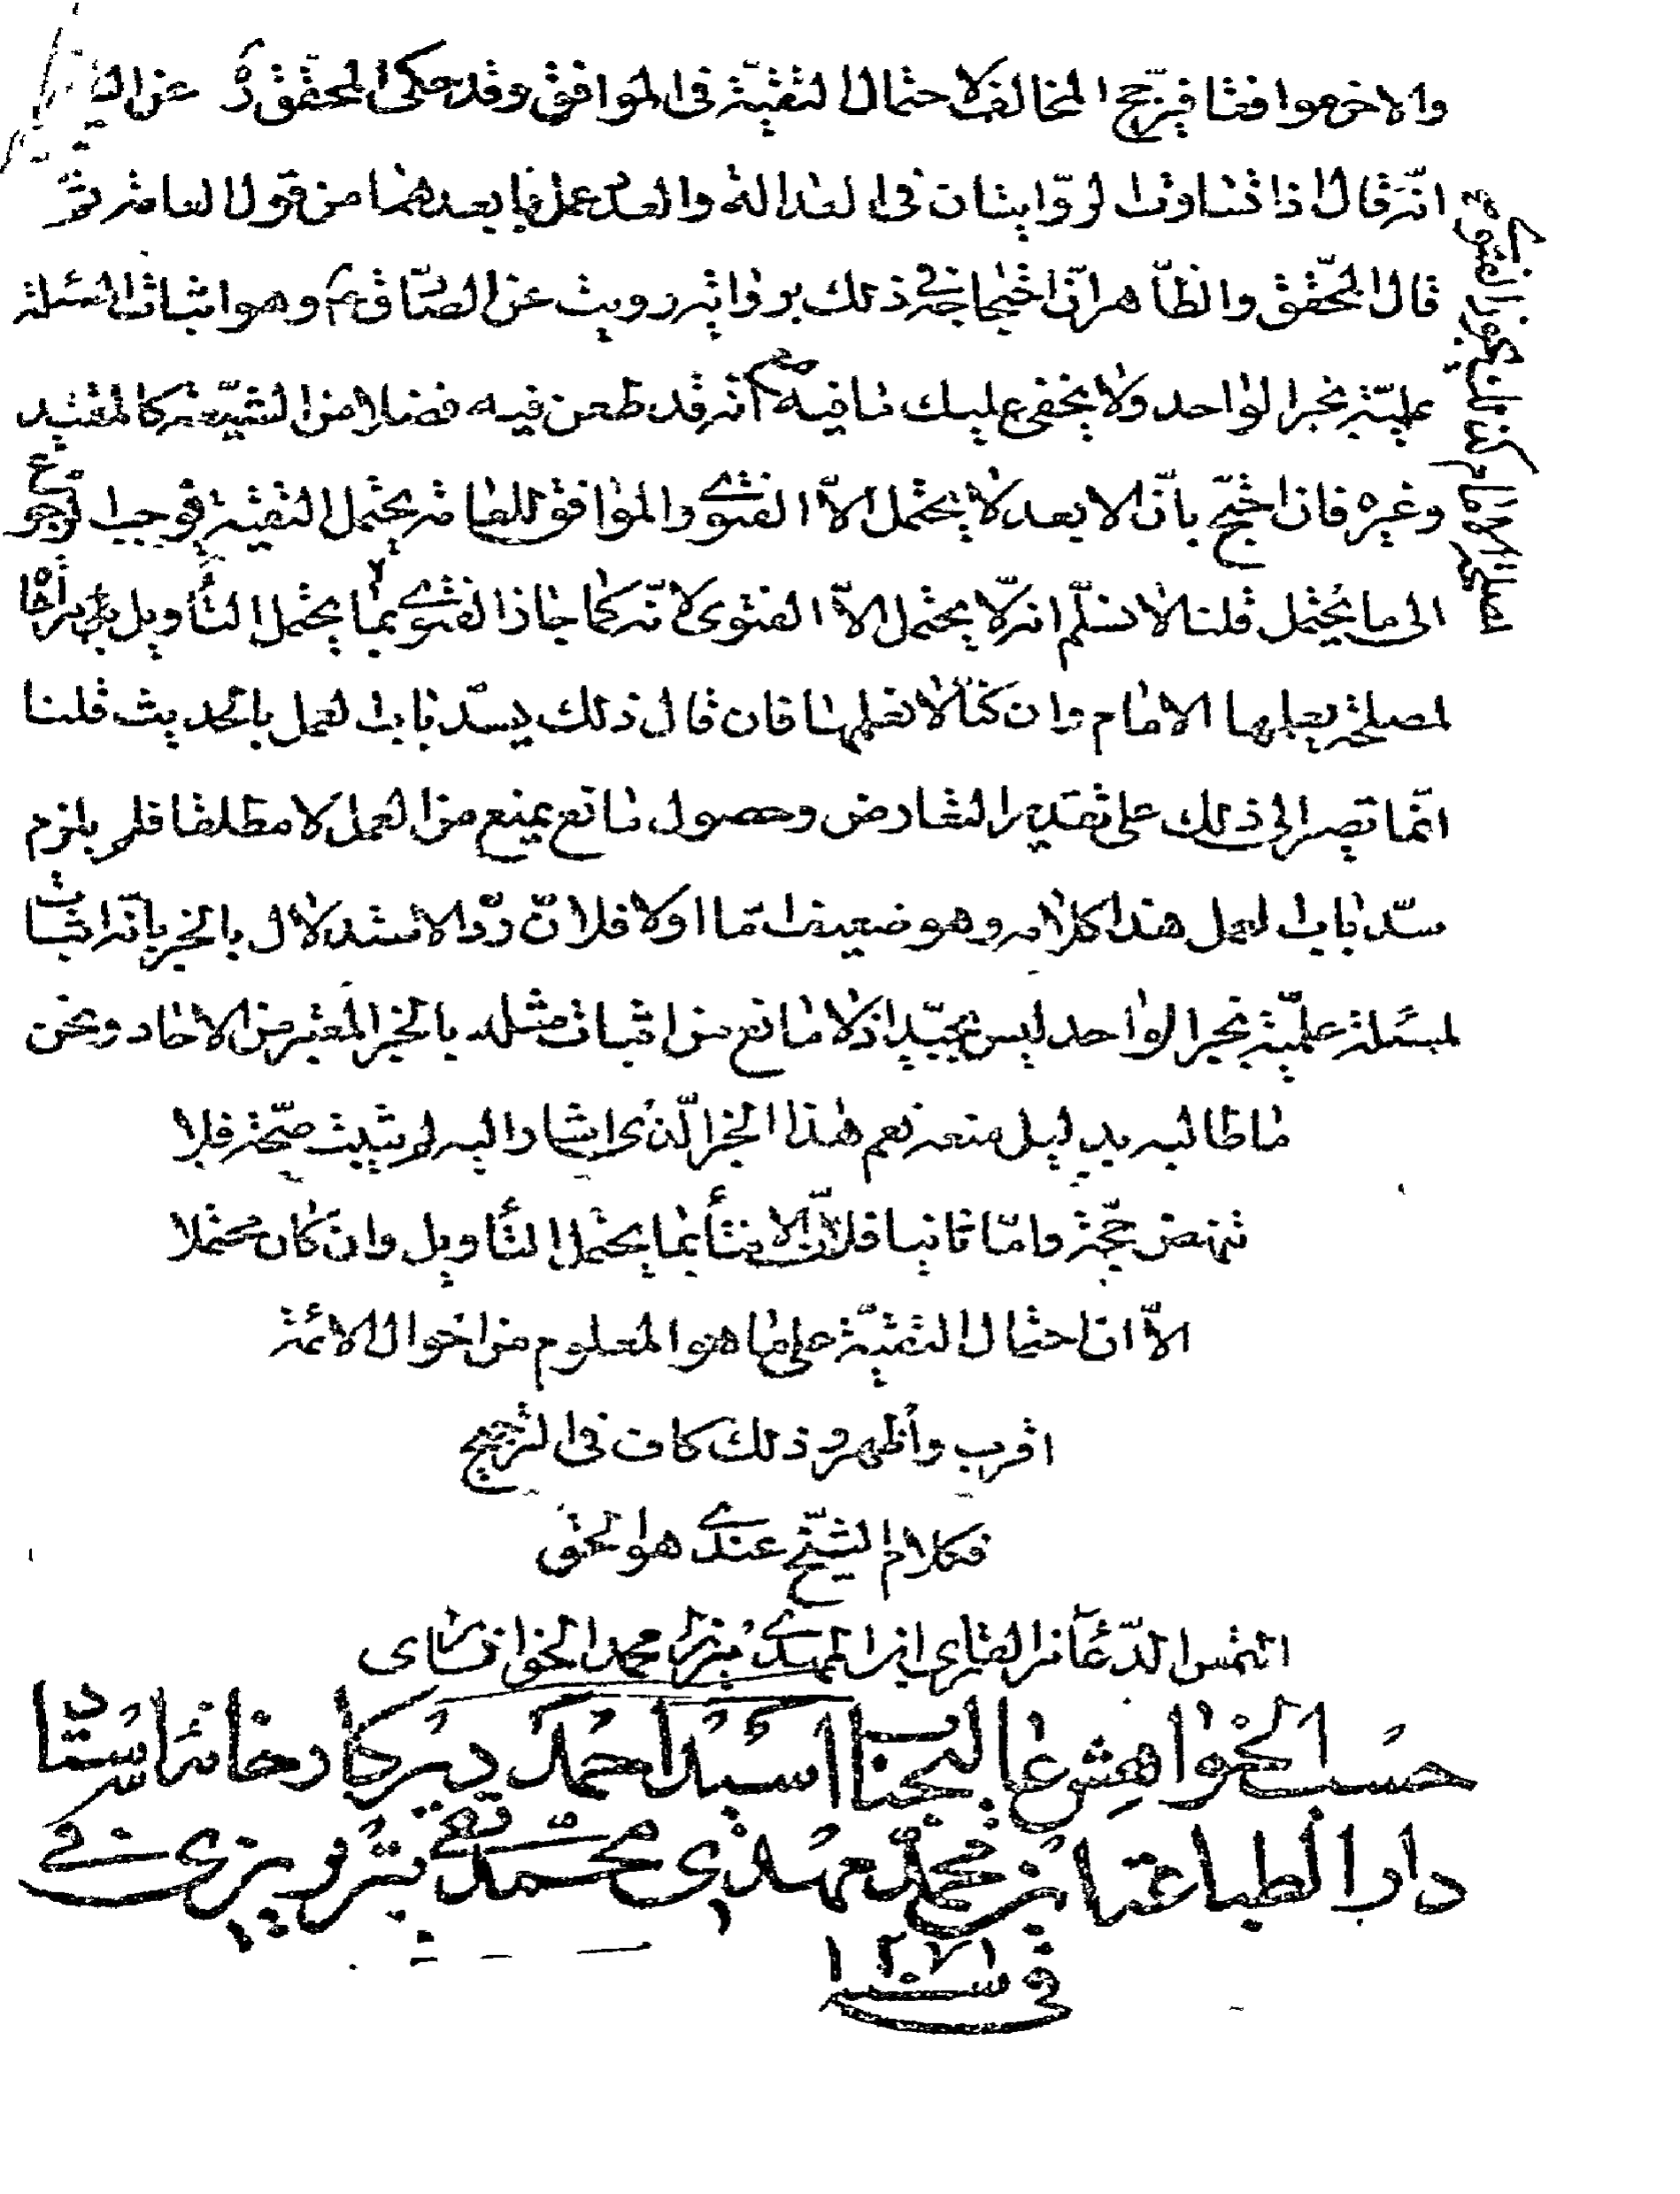 والاخر موافقا فيرجح المخالف لاحتمال التقية فى الموافق وقد حكى المحقق ره عن الشيخ
انه قال اذا تساوت الروايتان فى العدالة والعدد عمل بابعدهما من قول العامة ثم
قال المحقق والظاهر ان احتجاجه فى ذلك برواية رويت عن الصادق ع وهو اثبات المسئلة
علمية بخبر الواحد ولا يخفى عليك ما فيه مع انه قد طعن فيه فضلاء من الشيعة كالمفيد
وغيره فان احتج بان الابعد لا يحتمل الا الفتوى والموافق للعامة يحتمل التقية فوجب الرجوع
الى ما لا يحتمل قلنا لا نسلم انه لا يحتمل الا الفتوى لانه كما جاز الفتوى بما يحتمل التأويل
لمصلحة يعلمها الامام وان كنا لا نعلمها فان قال ذلك يسد باب العمل بالحديث قلنا
انما نصير الى ذلك على تقدير التعارض وحصول مانع يمنع من العمل لا مطلقا فلم يلزم
سد باب العمل هذا كلامه وهو ضعيف اما اولا فلان رد الاستدلال بالخبر بانه اثبات
لمسئلة علمية بخبر الواحد ليس بجيد اذ لا مانع من اثبات مثله بالخبر المعتبر من الاحاد ونحن
ماطالبه بدليل منعه نعم هذا الخبر الذى اشار اليه لم يثبت صحته فلا
تنهض حجة واما ثانيا فلان الافتاء بما يحتمل التأويل وان كان محتملا
الا ان احتمال التقية على ما هو المعلوم من احوال الائمة
اقرب واظهر وذلك كاف فى الترجيح
فكلام الشيخ عندى هو الحق
التمس الدعا من القارى ابن المهدى ميرزا محمد الخوانسارى
حسب الخواهش عاليجناب اسيد احمد در كارخانه استاد
دار الطباعة محمد مهدى محمد تقى تبريزى
فى سنة ١٢٧١